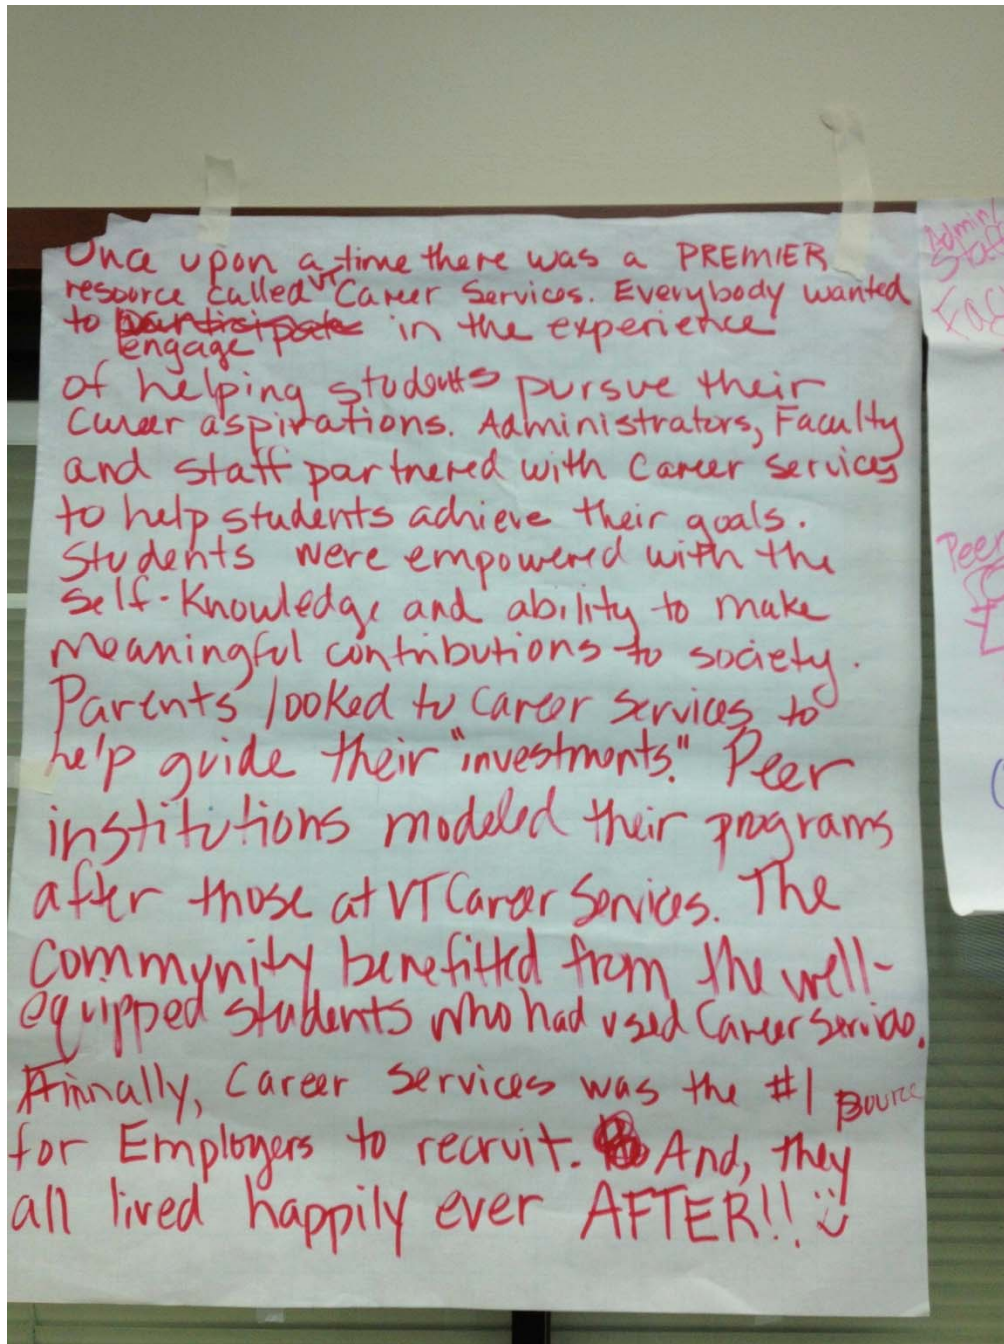 Once upon a time there was a PREMIER
resource called VT Career Services. Everybody wanted
to participate in the experience
engage
of helping students pursue their
Career aspirations. Administrators, Faculty
and staff partnered with Career Services
to help students achieve their goals.
Students were empowered with the
Self-Knowledge and ability to make
Meaningful contributions to society.
Parents looked to Career Services to
help guide their "investments." Peer
institutions modeled their programs
after those at VT Career Services. The
Community benefitted from the well-
equipped students who had used Career Services.
Finnally, Career Services was the #1 source
for Employers to recruit. And, they
all lived happily ever AFTER!! :)
Admin/
Staff
Peer